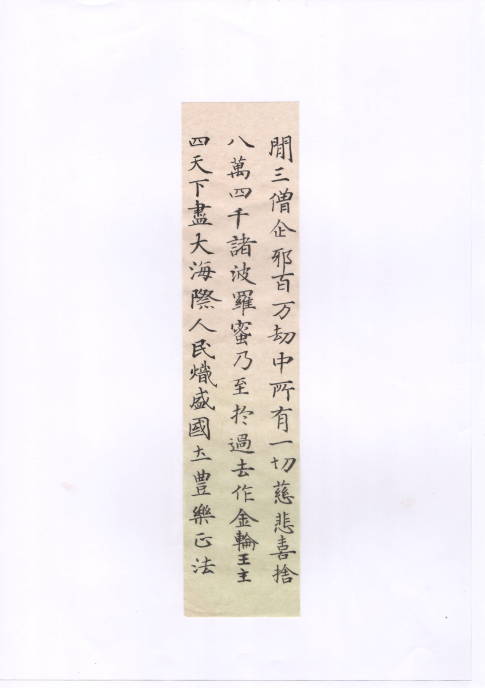 間三僧企耶百万劫中所有一切慈悲喜捨
八萬四千諸波羅蜜乃至於過去作金輪王主
四天下盡大海際人民熾盛國土豊樂正法